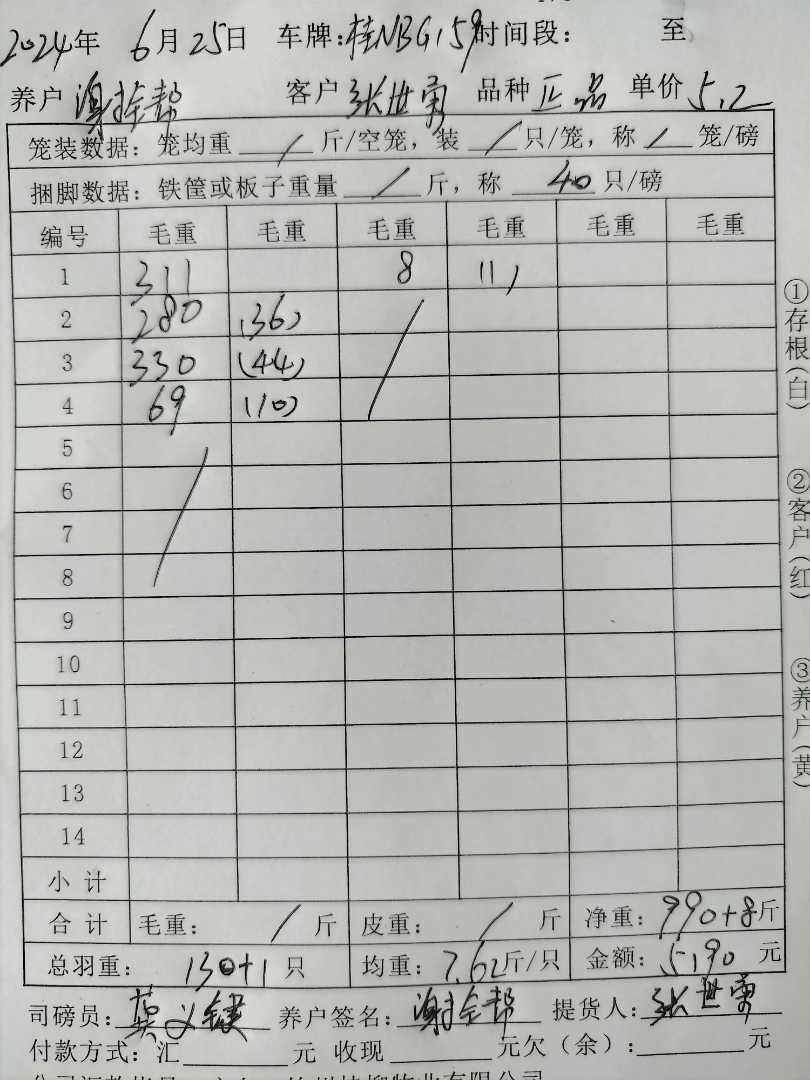 2024年 6月25日 车牌:桂NBG159时间段: 至
养户 谢全帮 客户 张世勇 品种 正品 单价 5.2
笼装数据: 笼均重 / 斤/空笼, 装 / 只/笼, 称 / 笼/磅
捆脚数据: 铁筐或板子重量 / 斤, 称 40 只/磅
编号 毛重 毛重 毛重 毛重 毛重 毛重
1 311 8 (1)
2 280 (36)
3 330 (44)
4 69 (10)
5
6
7
8
9
10
11
12
13
14
小计
合计 毛重: / 斤 皮重: / 斤 净重: 990+8斤
总羽重: 130+1 只 均重: 7.62斤/只 金额: 5190 元
司磅员: 养户签名: 谢全帮 提货人: 张世勇
付款方式: 汇 元 收现 元欠(余): 元
①存根(白)
②客户(红)
③养户(黄)